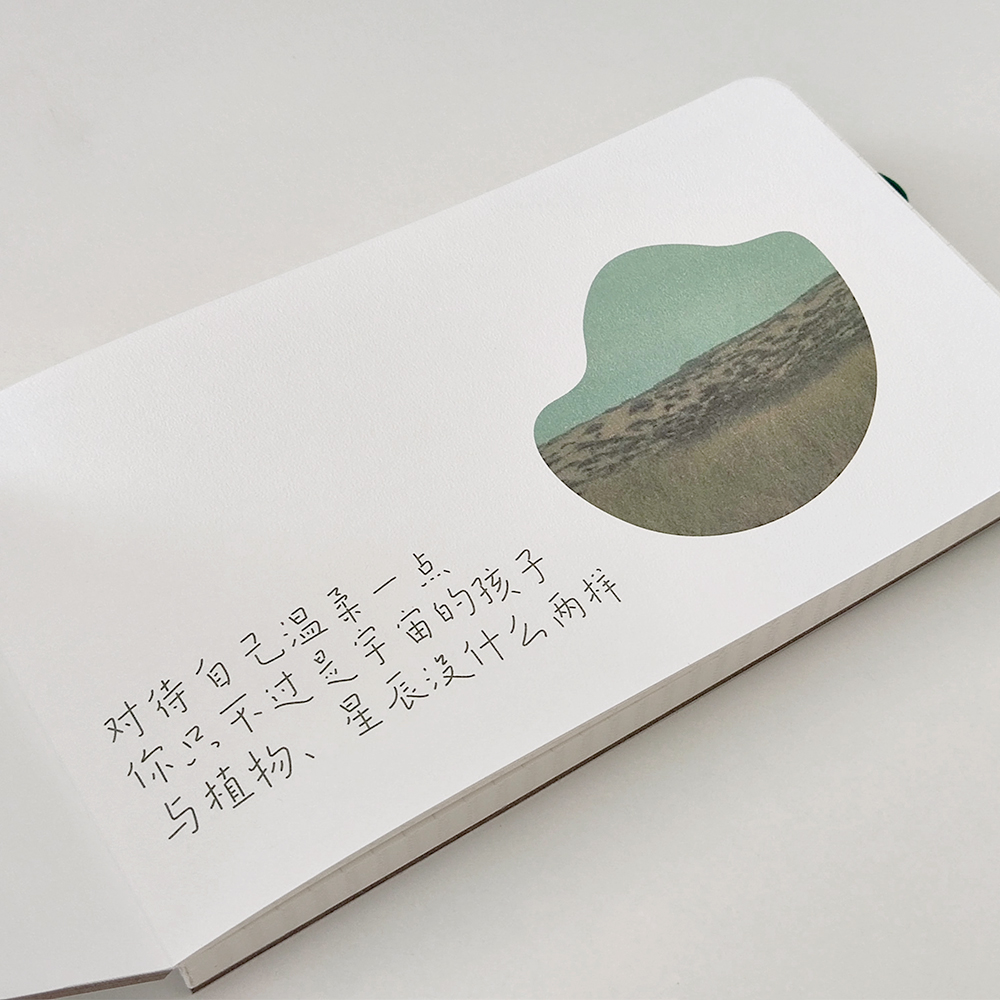 对待自己温柔一点
你只不过是宇宙的孩子
与植物、星辰没什么两样